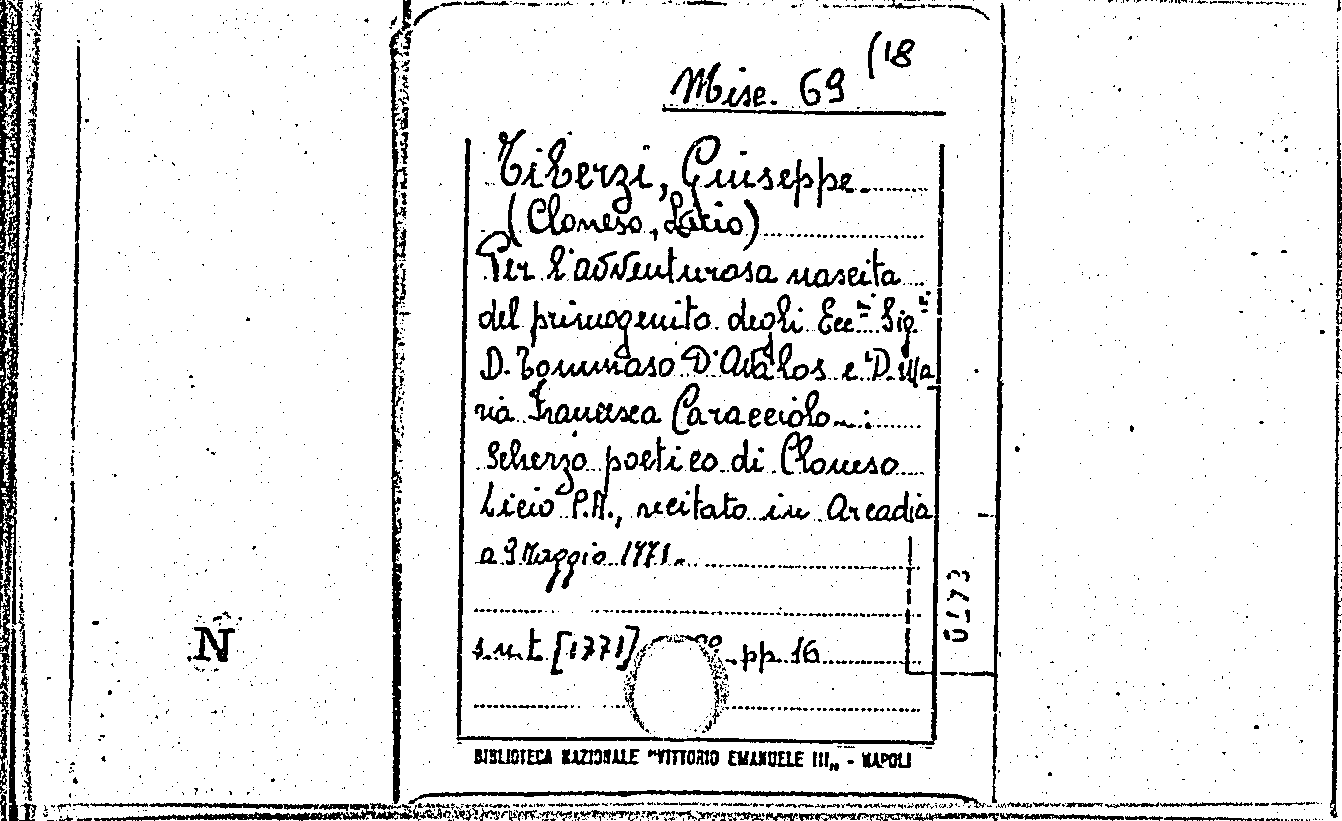 Misc. 69 (18
Tiberzi, Giuseppe.
(Cloneso, Licio)
Per l'avventurosa nascita
del primogenito degli Ecc.mi Sig.ri
D. Tommaso D'Avalos e D. Ma
ria Francesca Caracciolo... :
Scherzo poetico di Cloneso
Licio P.A., recitato in Arcadia
a 9 Maggio 1771.
s.n.t. [1771] pp. 16
0173
N
BIBLIOTECA NAZIONALE "VITTORIO EMANUELE III„ - NAPOLI